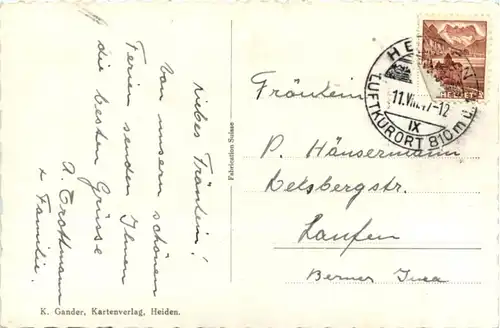 Liebes Fräulein!
Von unsern schönen
Ferien senden Ihnen
die besten Grüsse
A. Trottmann
+ Familie.
K. Gander, Kartenverlag, Heiden.
Fabrication Suisse
HEIDEN
11.VIII.47-12
IX
LUFTKURORT 810 m ü.
HELVETIA
Fräulein
P. Häusermann
Delsbergstr.
Laufen
Berner Jura